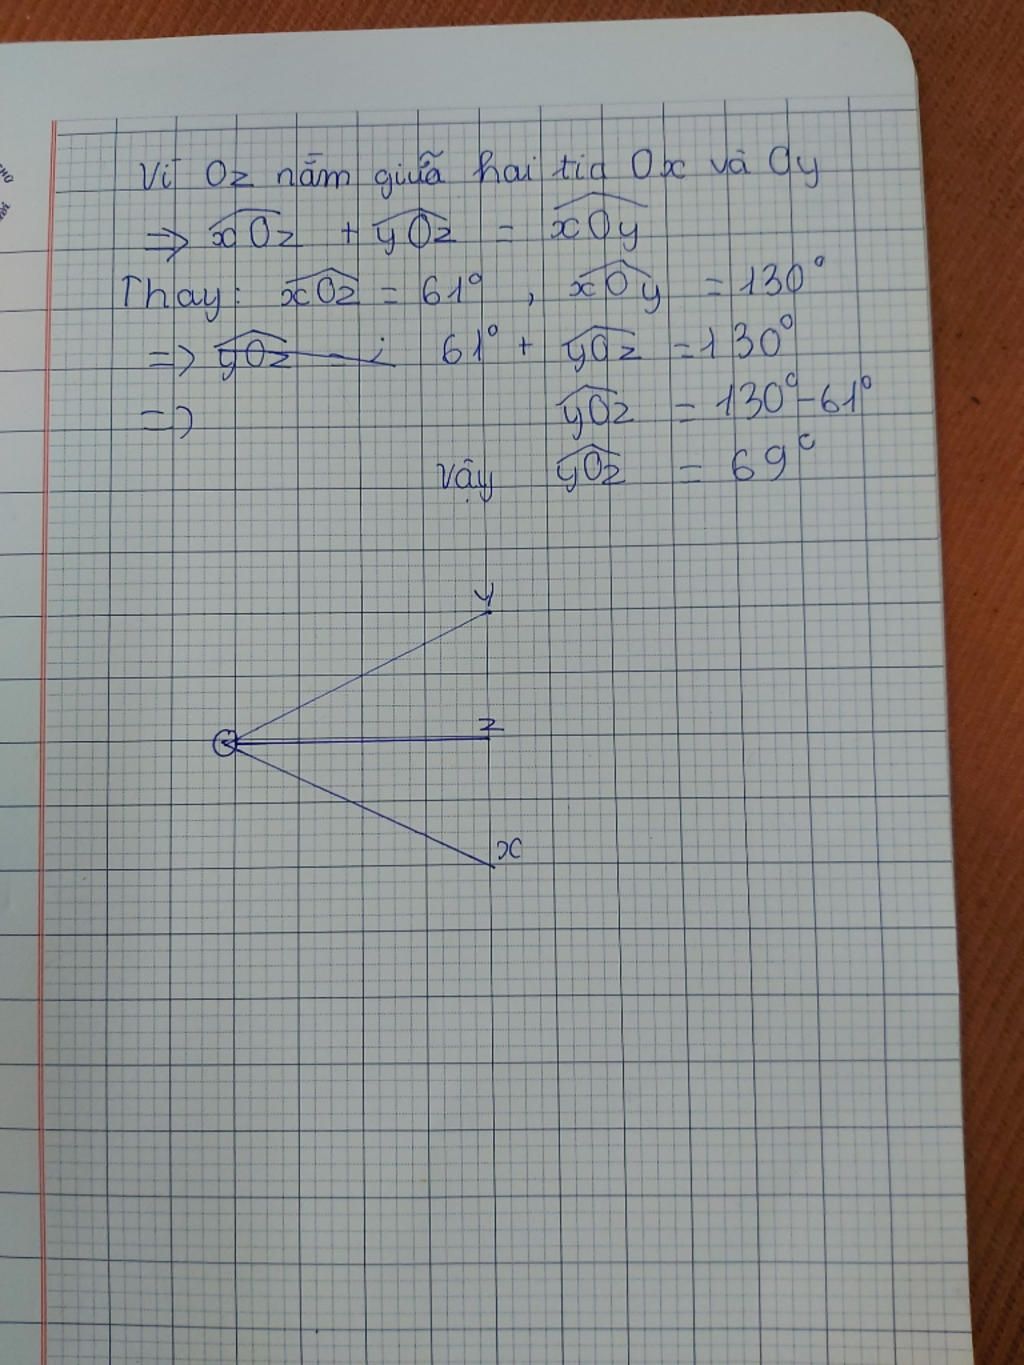 Vì Oz nằm giữa hai tia Ox và Oy
=> xOz + yOz = xOy
Thay: xOz = 61° , xOy = 130°
=> 61° + yOz = 130°
=> yOz = 130° - 61°
Vậy yOz = 69°
y
z
O
x